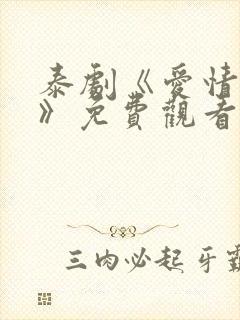 泰劇《愛情
》免費觀看
三肉必起牙霸